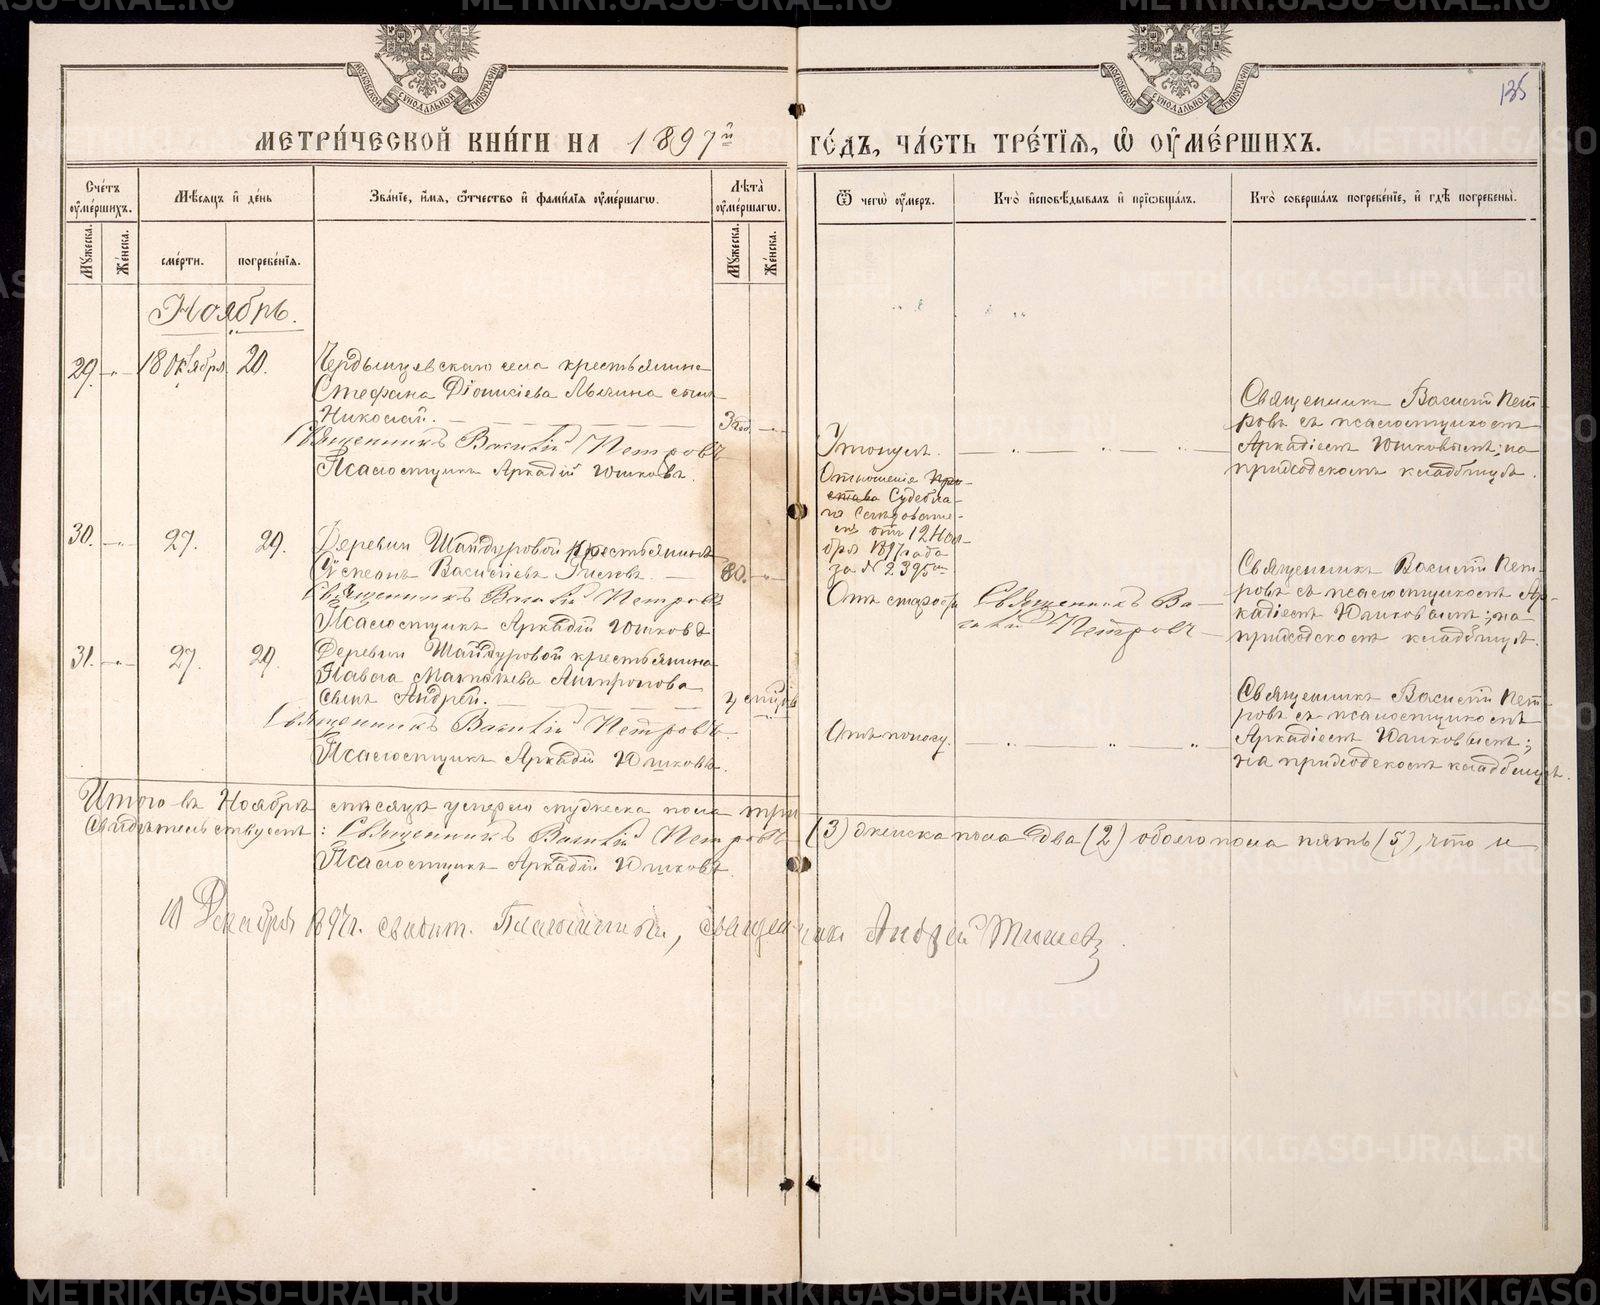 135
МЕТРИ́ЧЕСКОЙ КНИ́ГИ НА 1897й ГО́ДЪ, ЧА́СТЬ ТРЕ́ТІѦ, Ѡ҆ ОУ҆МЕ́РШИХЪ.
Сче́тъ оу҆ме́ршихъ.
Мѣ́сѧцъ и҆ де́нь
Зва́нїе, и҆́мѧ, ѻ҆́тчество и҆ фами́лїѧ оу҆ме́ршагѡ.
Лѣта̀ оу҆ме́ршагѡ.
Ѿ чегѡ̀ оу҆́меръ.
Кто̀ и҆сповѣ́дывалъ и҆ прїѡбща́лъ.
Кто̀ соверша́лъ погребе́нїе, и҆ гдѣ̀ погребены̀.
Мꙋ́жеска.
Же́нска.
сме́рти.
погребе́нїѧ.
Мꙋ́жеска.
Же́нска.
Ноябрь.
29. 18 Октября 20.
Стефана Діонисіева сынъ
Николай.
Священникъ Василій Петровъ
Псаломщикъ Аркадій Юшковъ.
Утонулъ.
Отношеніе При-
става Судебна-
го Следовате-
ля отъ 12 Ноя-
бря 1897 года
за № 2395мъ
Священникъ Василій Пет-
ровъ съ псаломщикомъ
Аркадіемъ Юшковымъ; на
приходскомъ кладбищѣ.
30. 27. 29. Деревни Шайдуровой крестьянинъ
Василіевъ
80.
Священникъ Василій Петровъ
Псаломщикъ Аркадій Юшковъ
Отъ старости
Священникъ Ва-
силій Петровъ
Священникъ Василій Пет-
ровъ съ псаломщикомъ Ар-
кадіемъ Юшковымъ; на
приходскомъ кладбищѣ.
31. 27. 29. Деревни Шайдуровой крестьянина
Павла Матѳѣева Антропова
сынъ Андрей.
Священникъ Василій Петровъ.
Псаломщикъ Аркадій Юшковъ.
Отъ поносу.
Священникъ Василій Пет-
ровъ съ псаломщикомъ
Аркадіемъ Юшковымъ;
на приходскомъ кладбищѣ.
Итого въ Ноябрѣ мѣсяцѣ умерло мужеска пола три (3) женска пола два (2) обоего пола пять (5), что и
свидѣтельствуемъ: Священникъ Василій Петровъ
Псаломщикъ Аркадій Юшковъ.
10 Декабря 1897г. Благочинный, священникъ Андрей
METRIKI.GASO-URAL.RU